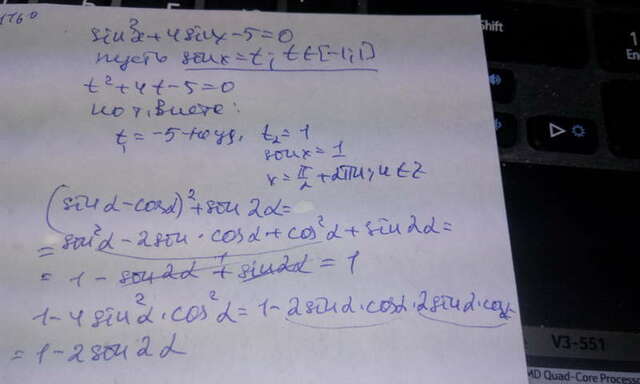 1160
sin²x+4sinx-5=0
пусть sinx=t; t∈[-1;1]
t²+4t-5=0
по т. Виета:
t₁=-5 -не уд, t₂=1
sinx=1
x=π/2+2πn, n∈Z
(sinα-cosα)²+sin2α=
=sin²α-2sin·cosα+cos²α+sin2α=
=1-sin2α+sin2α=1
1-4sin²α·cos²α=1-2sinα·cosα·2sinα·cosα
=1-2sin2α
Shift
1
En
V3-551
MD Quad-Core Processo